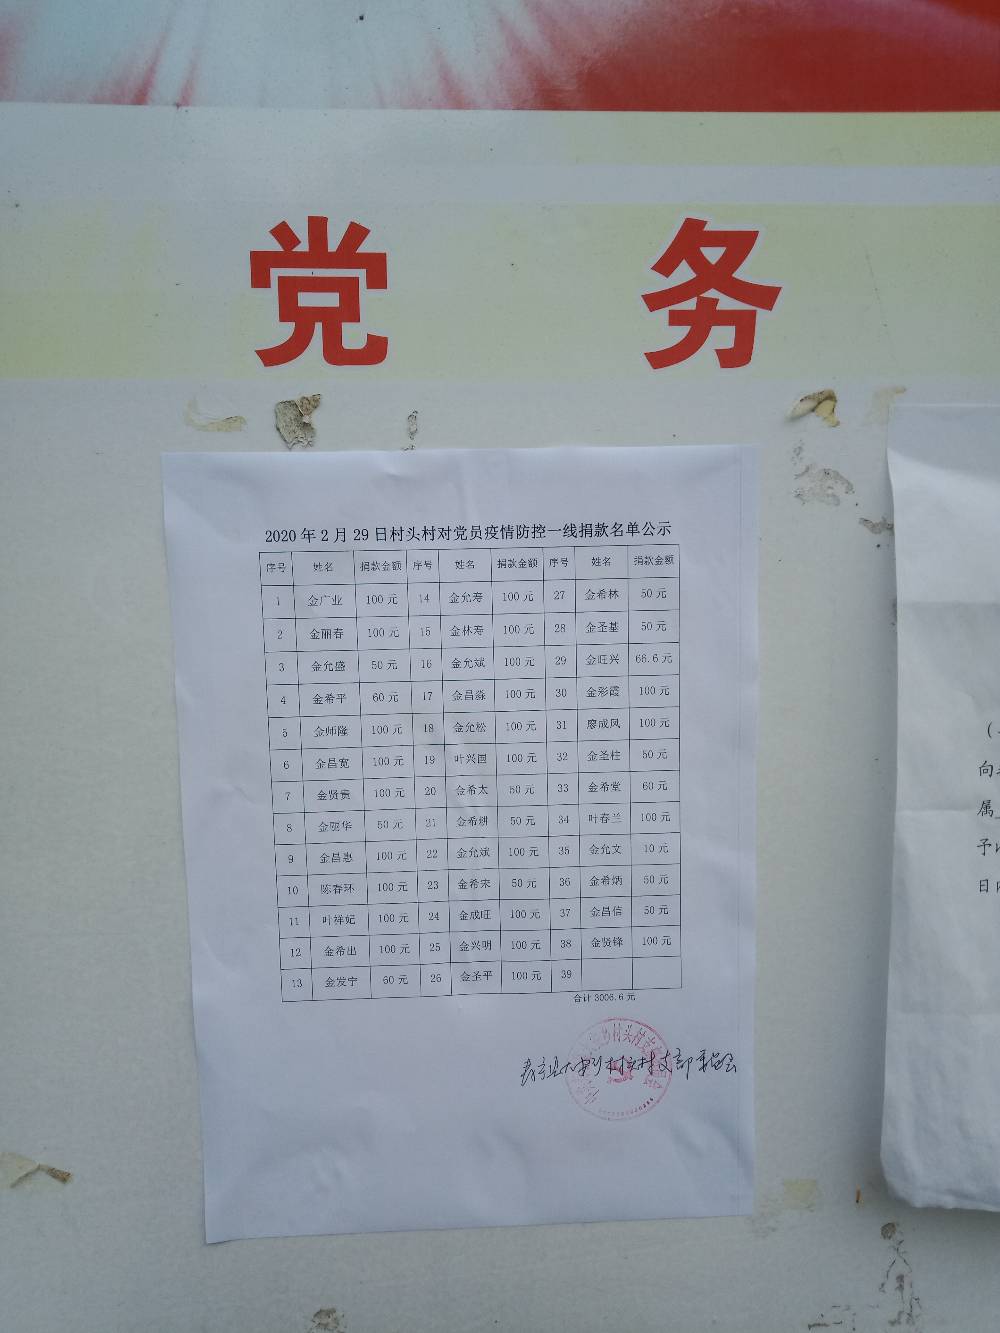 党 务
2020 年 2 月 29 日村头村对党员疫情防控一线捐款名单公示
序号 姓名 捐款金额 序号 姓名 捐款金额 序号 姓名 捐款金额
1 金广业 100 元 14 金允寿 100 元 27 金希林 50 元
2 金丽春 100 元 15 金林寿 100 元 28 金圣基 50 元
3 金允盛 50 元 16 金允斌 100 元 29 金旺兴 66.6 元
4 金希平 60 元 17 金昌淼 100 元 30 金彩霞 100 元
5 金师隆 100 元 18 金允松 100 元 31 廖成凤 100 元
6 金昌宽 100 元 19 叶兴国 100 元 32 金圣柱 50 元
7 金贤贵 100 元 20 金希太 50 元 33 金希堂 60 元
8 金丽华 50 元 21 金希耕 50 元 34 叶春兰 100 元
9 金昌惠 100 元 22 金允斌 100 元 35 金允文 10 元
10 陈春环 100 元 23 金希宋 50 元 36 金希炳 50 元
11 叶祥妃 100 元 24 金成旺 100 元 37 金昌信 50 元
12 金希出 100 元 25 金兴明 100 元 38 金贤锋 100 元
13 金发宁 60 元 26 金圣平 100 元 39
合计3006.6 元
村头村支部委员会
向
属
予
日